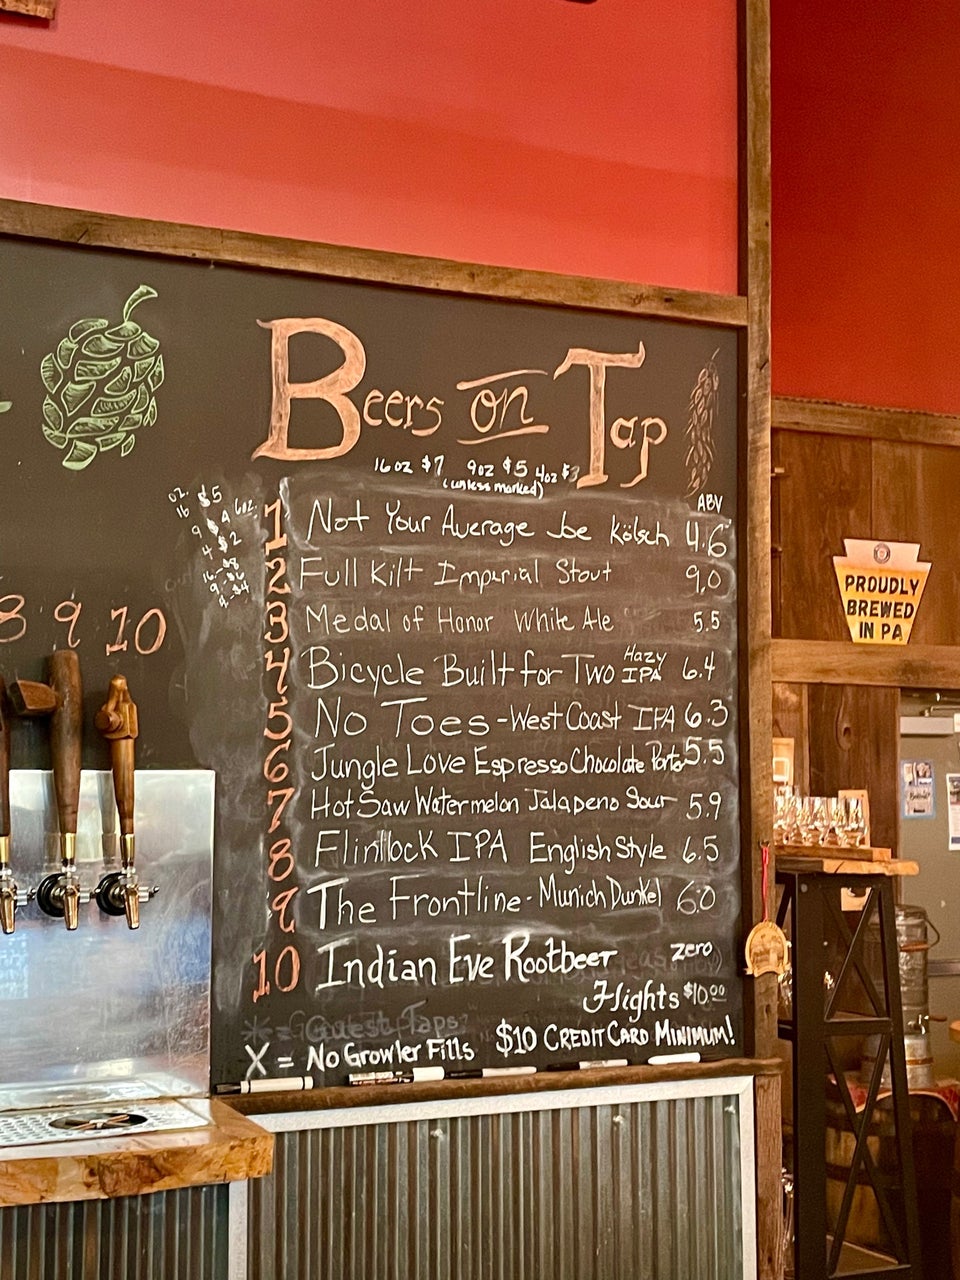 Beers on Tap
16oz $7 9oz $5 4oz $3
(unless marked)
ABV
oz.
16 $5
9 $4 6oz
4 $2
16-$8
9-$6
4-$4
1 Not Your Average Joe Kölsch 4.6
2 Full Kilt Imperial Stout 9.0
3 Medal of Honor White Ale 5.5
4 Bicycle Built for Two Hazy IPA 6.4
5 No Toes - West Coast IPA 6.3
6 Jungle Love Espresso Chocolate Porter 5.5
7 Hot Saw Watermelon Jalapeno Sour 5.9
8 Flintlock IPA English Style 6.5
9 The Frontline - Munich Dunkel 6.0
10 Indian Eve Rootbeer zero
Flights $10.00
* = Guest Taps
X = No Growler Fills $10 CREDIT CARD MINIMUM!
8 9 10
PROUDLY
BREWED
IN PA